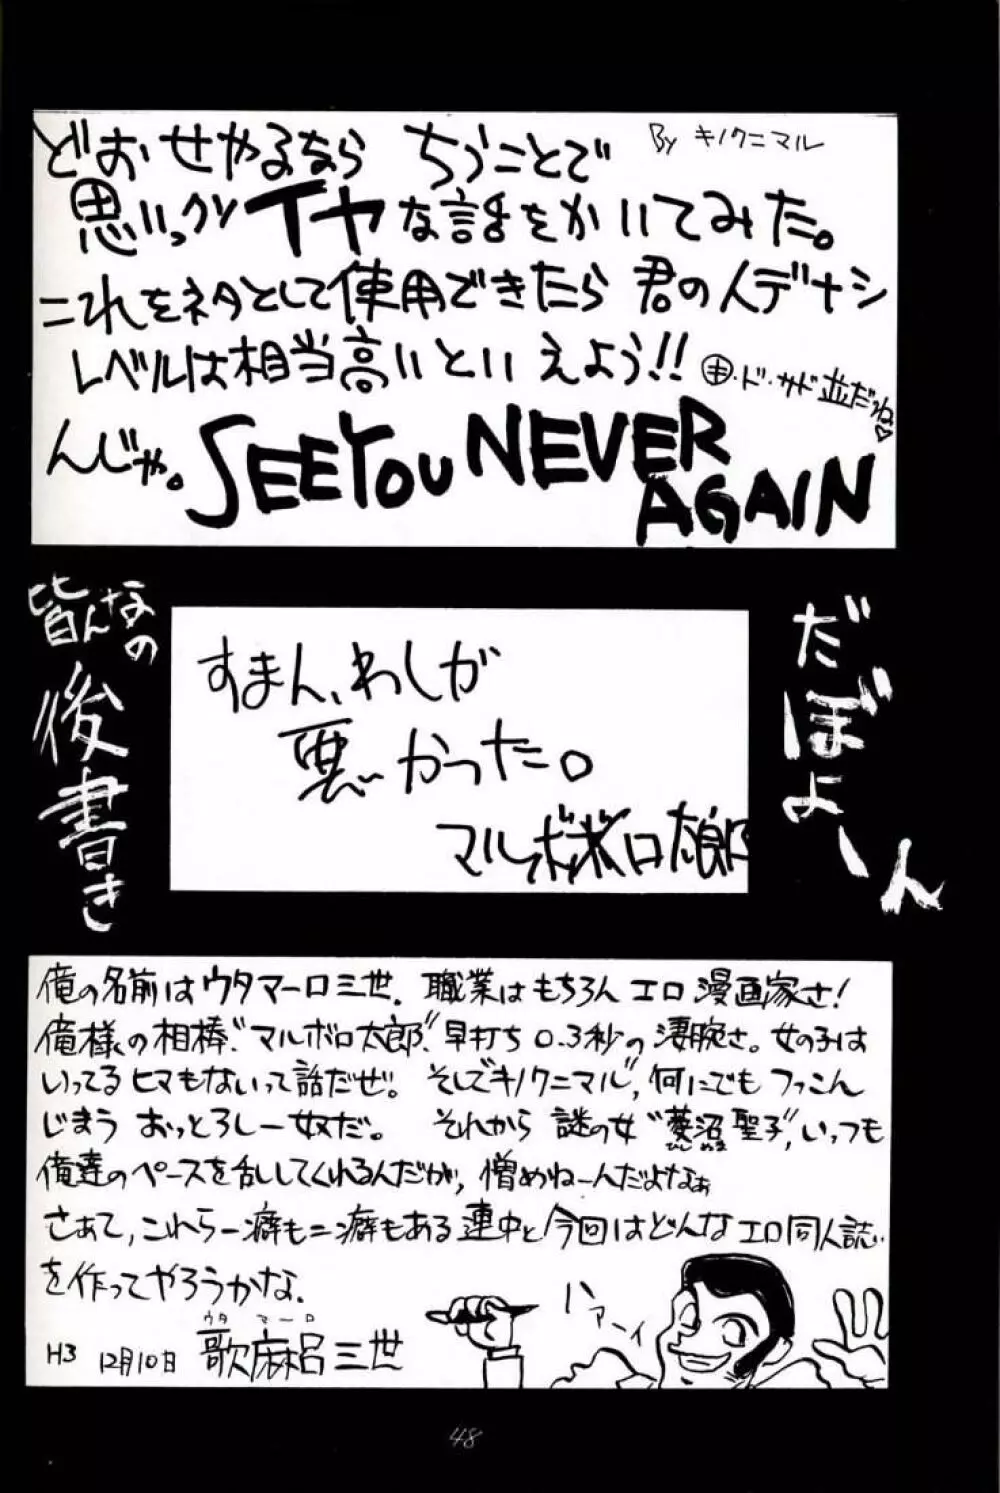 どおせやるなら ちうことで
By キノクニマル
思いっクソ イヤな話をかいてみた。
これをネタとして使用できたら 君の人デナシ
レベルは相当高いといえよう!!
・ド・サド並だね♡
んじゃ。SEE YOU NEVER
AGAIN
皆んなの
後書き
だぼよーん
すまん、わしが
悪かった。
マルボロ太郎
俺の名前はウタマーロ三世. 職業はもちろん エロ漫画家さ!
俺様の相棒“マルボロ太郎”早打ち0.3秒の凄腕さ。女の子は
いってるヒマもないって話だぜ。 そして“キノクニマル”, 何にでも つっこん
じまう おっとろしー奴だ。 それから 謎の女“菱沼聖子”, いっつも
ひし ぬま
俺達のペースを乱してくれるんだが, 憎めねーんだよなぁ
さあて, これら一癖も二癖もある連中と今回はどんなエロ同人誌
を作ってやろうかな.
ハァーイ
ウタ マー ロ
H3 12月10日 歌麻呂三世
48